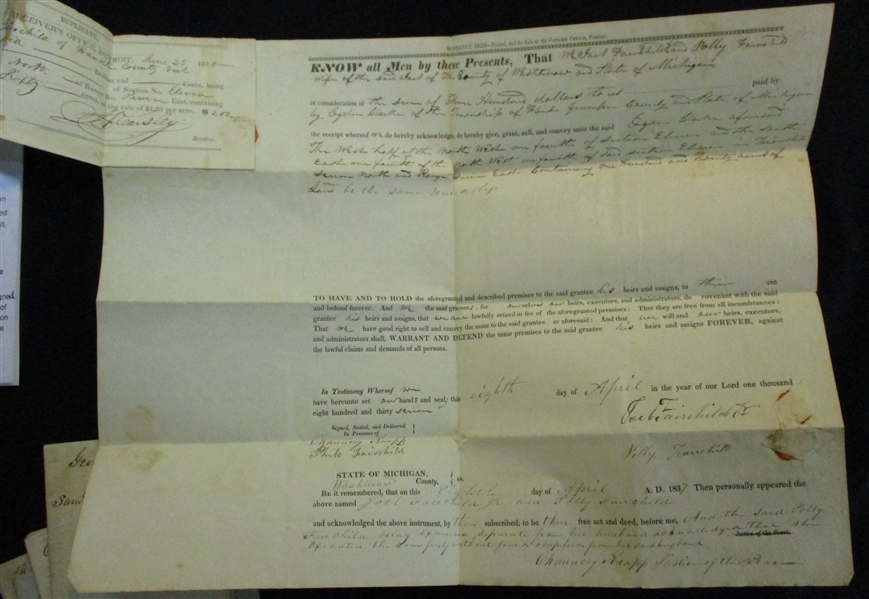 DUPLICATE.
RECEIVER'S OFFICE, DE
TROIT, June 25 18
of County
Cents, being
of Section No. Eleven
Seven East, containing
rate of $1,25 per acre. $200
Sixty
Receiver.
KNOW all Men by these Presents, That Joel Fairchild and Polly Fairchild
Wife of the said Joel of the County of Washtenaw and State of Michigan
in consideration of the sum of Four Hundred dollars to us paid by
by Ogden Clark of the Township of Flint Genesee County and State of Michigan
the receipt whereof we do hereby acknowledge, do hereby give, grant, sell, and convey unto the said Ogden Clark aforesaid
The West half of the North West one fourth of section Eleven and the South
East one fourth of the north West one fourth of said section Eleven in Township
seven north and Range seven East Containing one Hundred and twenty acres of
Land be the same more or less
TO HAVE AND TO HOLD the aforegranted and described premises to the said grantee his heirs and assigns, to their use
and behoof forever. And we the said grantors, for ourselves our heirs, executors, and administrators, do covenant with the said
grantee his heirs and assigns, that we are lawfully seized in fee of the aforegranted premises: That they are free from all incumbrances:
That we have good right to sell and convey the same to the said grantee as aforesaid: And that we will and our heirs, executors,
and administrators shall, WARRANT AND DEFEND the same premises to the said grantee his heirs and assigns FOREVER, against
the lawful claims and demands of all persons.
In Testimony Whereof we
have hereunto set our hands and seal, this eighth day of April in the year of our Lord one thousand
eight hundred and thirty seven
Signed, Sealed, and Delivered
In Presence of
Joel Fairchild Jr
Chauncy Knapp
Philo Fairchild
Polly Fairchild
STATE OF MICHIGAN,
Washtenaw County, ss.
Be it remembered, that on this Eighth day of April A. D. 1837 Then personally appeared the
above named Joel Fairchild Jr and Polly Fairchild
and acknowledged the above instrument, by them subscribed, to be their free act and deed, before me, And the said Polly
Fairchild being examined separate from her husband acknowledged that she
Justice of the Peace.
Executed the same freely without fear or compulsion from her said husband
Chauncey Knapp Justice of the Peace
Geo
Sam